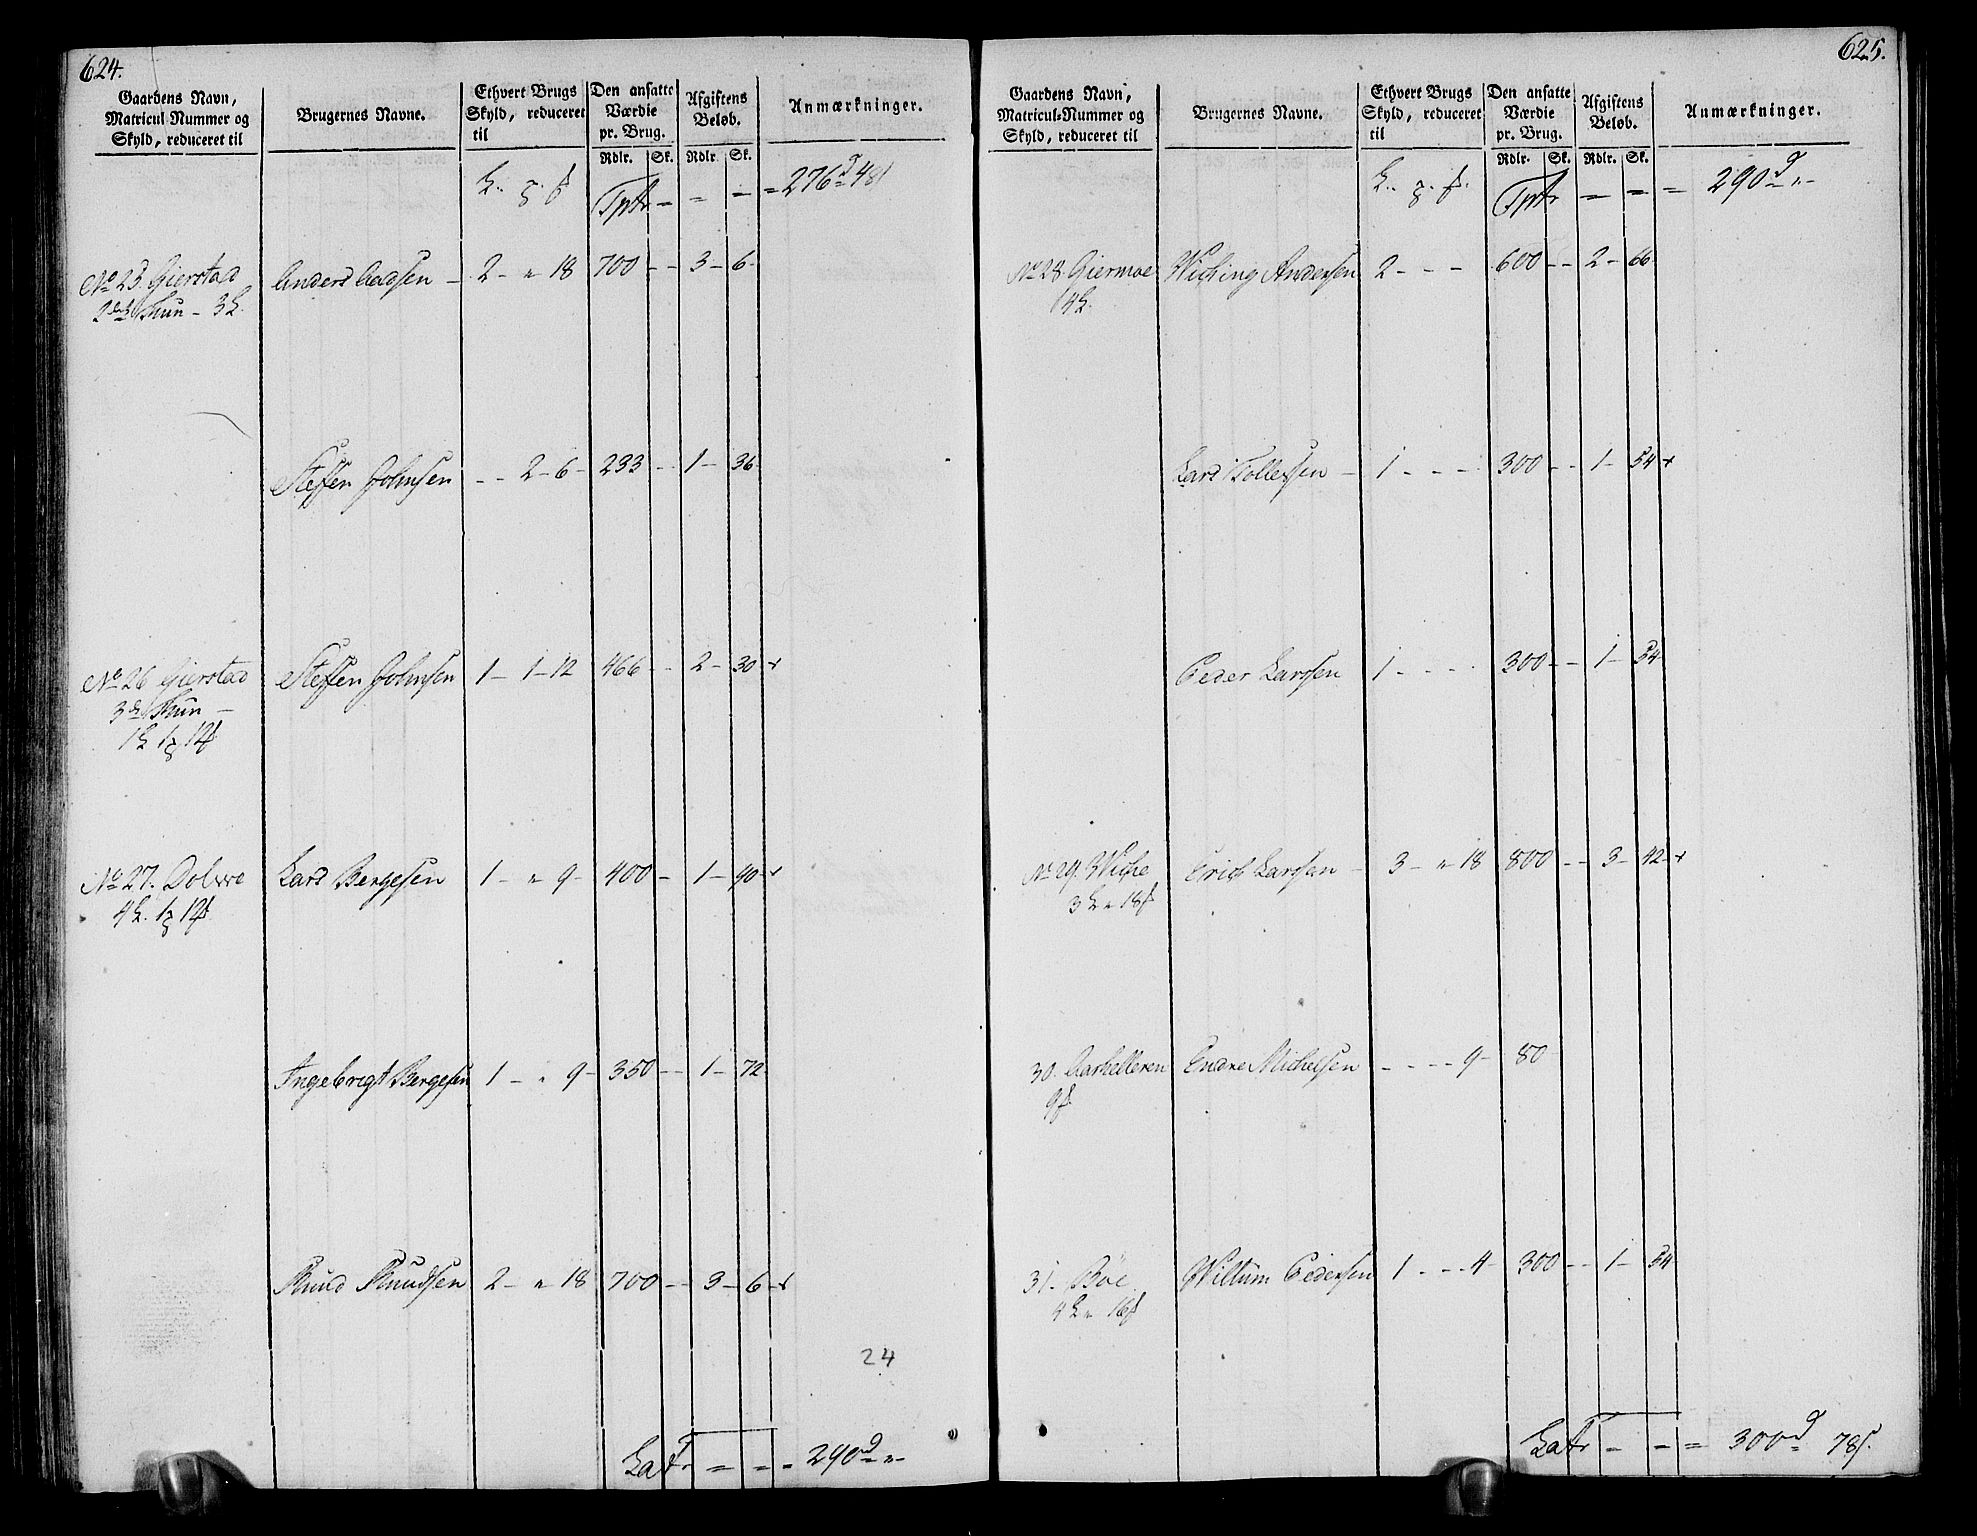 624.
Gaardens Navn, Matricul Nummer og Skyld, reduceret til
Brugernes Navne.
Ethvert Brugs Skyld, reduceret til
Den ansatte Værdie pr. Brug.
Afgiftens Beløb.
Anmærkninger.
Rdlr. Sk. Rdlr. Sk.
Tptr - = - = 276 48
No 25 Gierstad Anders Aadsen - 2 - " 18 700 - - 3 - 6 -
3
Steffen Johnsen - - 2 - 6 - 233 - - 1 - 36
No 26 Gierstad Steffen Johnsen 1 - 1 - 12 466 - - 2 - 30 +
3
1 1 12
No 27. Dolwe Lars Bergesen 1 - " 9 - 400 - 1 - 90 +
4 1 12
Ingebrigt Bergesen 1 - " 9 - 350 - - 1 - 72
Knud Knudsen 2 - " 18 700 - - 3 - 6 - +
24
Latr = = = 290 " -
625.
Gaardens Navn, Matricul-Nummer og Skyld, reduceret til
Brugernes Navne.
Ethvert Brugs Skyld, reduceret til
Den ansatte Værdie pr. Brug.
Afgiftens Beløb.
Anmærkninger.
Rdlr. Sk. Rdlr. Sk.
Tptr = = = 290 " -
No 28 Giermoe Wiching Andersen 2 - - - 600 - - 2 - 66
4
Lars Tollefsen - 1 - - - 300 - - 1 - 54 +
Peder Larssen 1 - - - 300 - - 1 - 54
No 29. Wiche Erich Larssen - 3 - " 18 800 - - 3 - 42 - +
3 " 18
30. Aarhelleren Endre Michelsen - - - - 9 - 80
9
31. Bøe Willum Pedersen 1 - - - 4 - 300 - - 1 - 54
4 " 16
Latr = = = 300 78